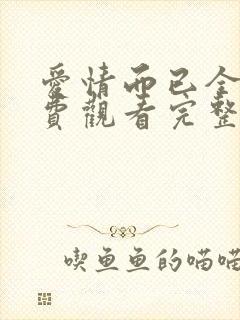 愛情而已全
費觀看完整
喫鱼鱼的喵喵